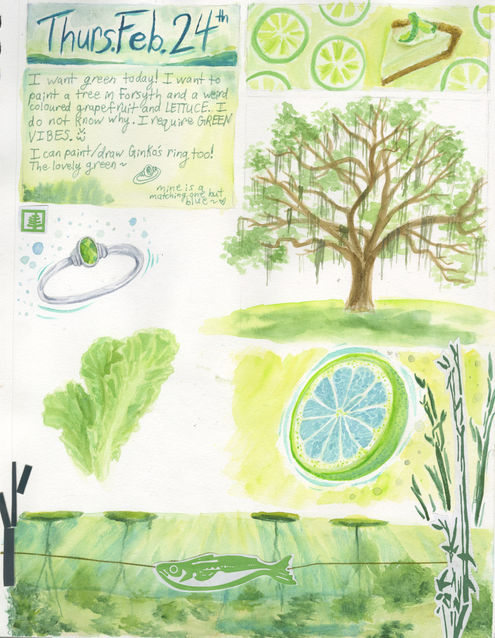 Thurs. Feb. 24th
I want green today! I want to
paint a tree in Forsyth and a weird
coloured grapefruit and LETTUCE. I
do not know why. I require GREEN
VIBES.
I can paint/draw Ginko's ring, too!
The lovely green~
mine is a
matching one but
blue~